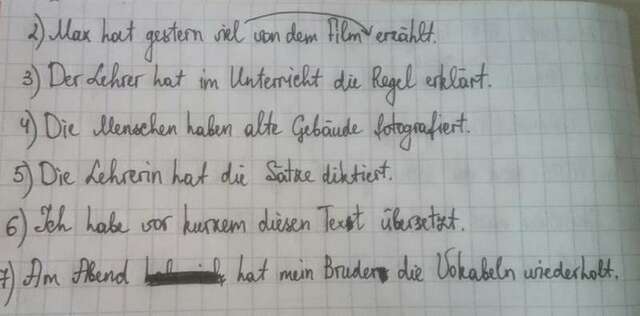 2) Max hat gestern viel von dem Film erzählt.
3) Der Lehrer hat im Unterricht die Regel erklärt.
4) Die Menschen haben alte Gebäude fotografiert.
5) Die Lehrerin hat die Sätze diktiert.
6) Ich habe vor kurzem diesen Text übersetzt.
7) Am Abend hat mein Bruder die Vokabeln wiederholt.